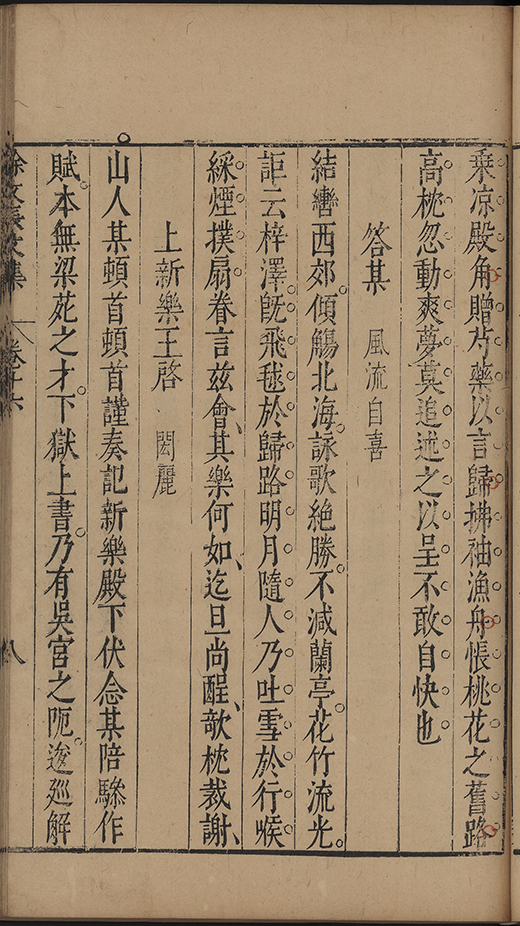 乗凉殿角贈芍藥以言歸拂袖漁舟悵桃花之舊路
高枕忽動爽夢真追述之以呈不敢自快也
答某　風流自喜
結轡西郊傾觴北海詠歌絶勝不減蘭亭花竹流光
詎云梓澤旣飛毬於歸路明月隨人乃吐雪於行喉
綵煙撲扇眷言兹會其樂何如迄旦尚酲欹枕裁謝
上新樂王啓　閎麗
山人某頓首頓首謹奏記新樂殿下伏念某陪驂作
賦本無梁苑之才下獄上書乃有吳宮之阨逡廵解
徐文長文集　卷十六　八